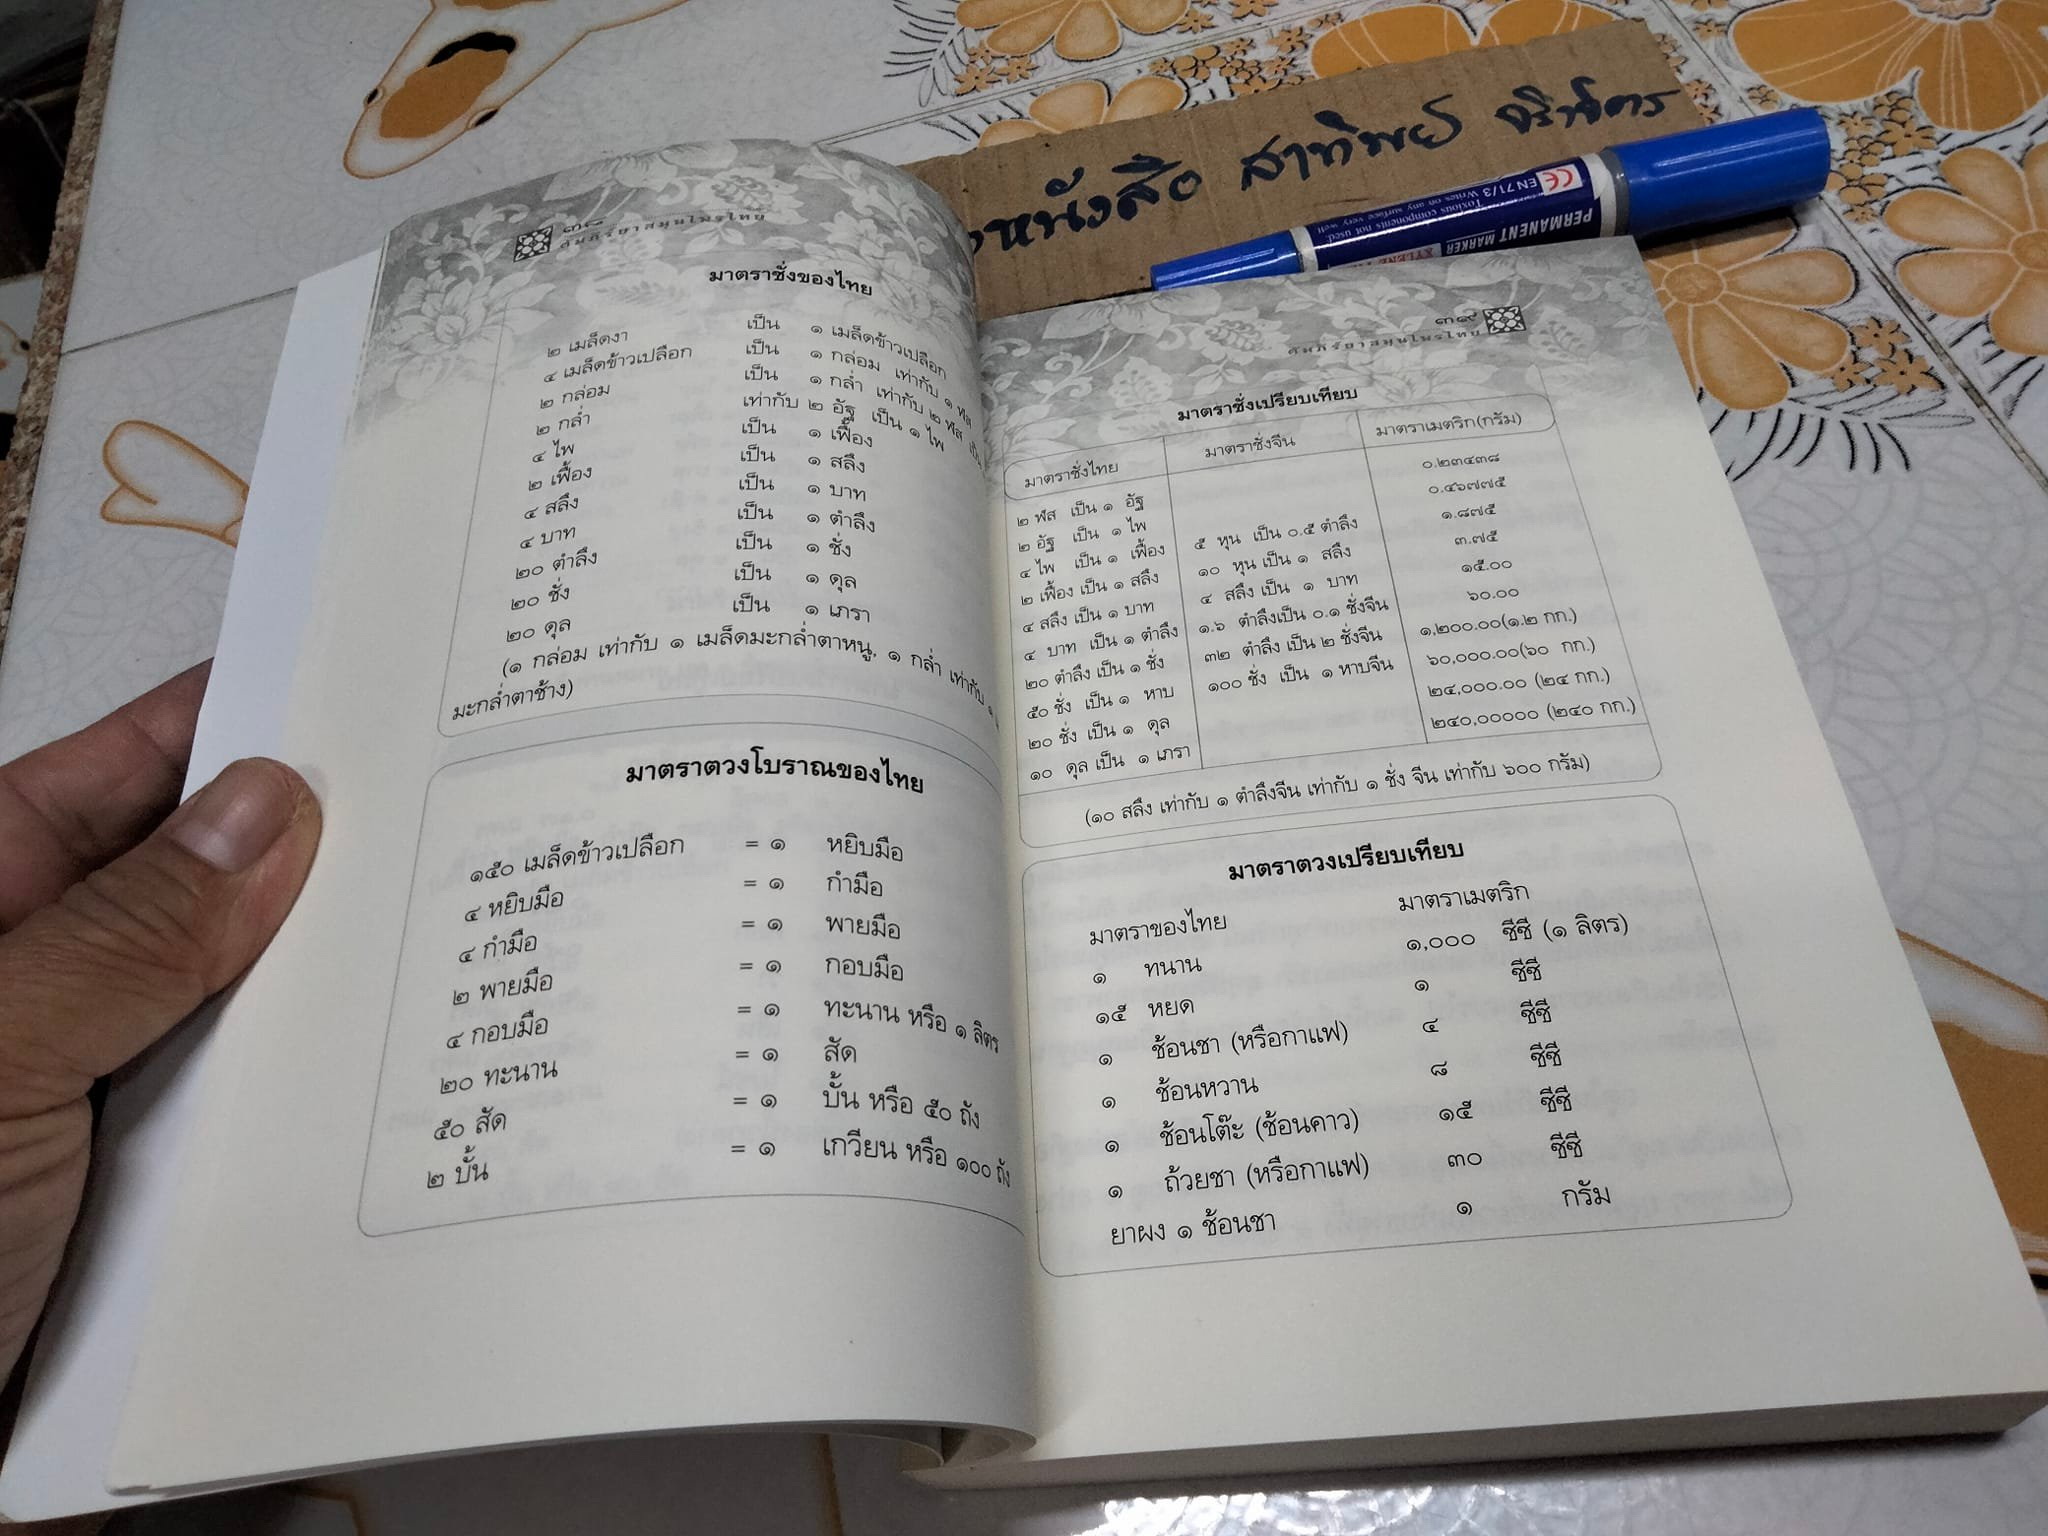 หนังสือ สาทิพย์
PERMANENT MARKER
Toxious components not used.
Writes any on any surface very well
EN 71/3
CE
๓๘
คัมภีร์ยาสมุนไพรไทย
มาตราชั่งของไทย
๒ เมล็ดงา เป็น ๑ เมล็ดข้าวเปลือก
๔ เมล็ดข้าวเปลือก เป็น ๑ กล่อม เท่ากับ ๑ ฬส
๒ กล่อม เป็น ๑ กล่ำ เท่ากับ ๒ ฬส เป็น
๒ กล่ำ เท่ากับ ๒ อัฐ เป็น ๑ ไพ
๔ ไพ เป็น ๑ เฟื้อง
๒ เฟื้อง เป็น ๑ สลึง
๔ สลึง เป็น ๑ บาท
๔ บาท เป็น ๑ ตำลึง
๒๐ ตำลึง เป็น ๑ ชั่ง
๒๐ ชั่ง เป็น ๑ ดุล
๒๐ ดุล เป็น ๑ เภรา
(๑ กล่อม เท่ากับ ๑ เมล็ดมะกล่ำตาหนู, ๑ กล่ำ เท่ากับ ๑
มะกล่ำตาช้าง)
มาตราตวงโบราณของไทย
๑๕๐ เมล็ดข้าวเปลือก = ๑ หยิบมือ
๔ หยิบมือ = ๑ กำมือ
๔ กำมือ = ๑ พายมือ
๒ พายมือ = ๑ กอบมือ
๔ กอบมือ = ๑ ทะนาน หรือ ๑ ลิตร
๒๐ ทะนาน = ๑ สัด
๕๐ สัด = ๑ บั้น หรือ ๕๐ ถัง
๒ บั้น = ๑ เกวียน หรือ ๑๐๐ ถัง
๓๙
คัมภีร์ยาสมุนไพรไทย
มาตราชั่งเปรียบเทียบ
มาตราชั่งไทย มาตราชั่งจีน มาตราเมตริก(กรัม)
๒ ฬส เป็น ๑ อัฐ ๐.๒๓๔๓๘
๒ อัฐ เป็น ๑ ไพ ๐.๔๖๗๗๕
๔ ไพ เป็น ๑ เฟื้อง ๕ หุน เป็น ๐.๕ ตำลึง ๑.๘๗๕
๒ เฟื้อง เป็น ๑ สลึง ๑๐ หุน เป็น ๑ สลึง ๓.๗๕
๔ สลึง เป็น ๑ บาท ๔ สลึง เป็น ๑ บาท ๑๕.๐๐
๔ บาท เป็น ๑ ตำลึง ๑.๖ ตำลึงเป็น ๐.๑ ชั่งจีน ๖๐.๐๐
๒๐ ตำลึง เป็น ๑ ชั่ง ๓๒ ตำลึง เป็น ๒ ชั่งจีน ๑,๒๐๐.๐๐(๑.๒ กก.)
๕๐ ชั่ง เป็น ๑ หาบ ๑๐๐ ชั่ง เป็น ๑ หาบจีน ๖๐,๐๐๐.๐๐(๖๐ กก.)
๒๐ ชั่ง เป็น ๑ ดุล ๒๔,๐๐๐.๐๐ (๒๔ กก.)
๑๐ ดุล เป็น ๑ เภรา ๒๔๐,๐๐๐๐๐ (๒๔๐ กก.)
(๑๐ สลึง เท่ากับ ๑ ตำลึงจีน เท่ากับ ๑ ชั่ง จีน เท่ากับ ๖๐๐ กรัม)
มาตราตวงเปรียบเทียบ
มาตราของไทย มาตราเมตริก
๑ ทนาน ๑,๐๐๐ ซีซี (๑ ลิตร)
๑๕ หยด ๑ ซีซี
๑ ช้อนชา (หรือกาแฟ) ๔ ซีซี
๑ ช้อนหวาน ๘ ซีซี
๑ ช้อนโต๊ะ (ช้อนคาว) ๑๕ ซีซี
๑ ถ้วยชา (หรือกาแฟ) ๓๐ ซีซี
ยาผง ๑ ช้อนชา ๑ กรัม